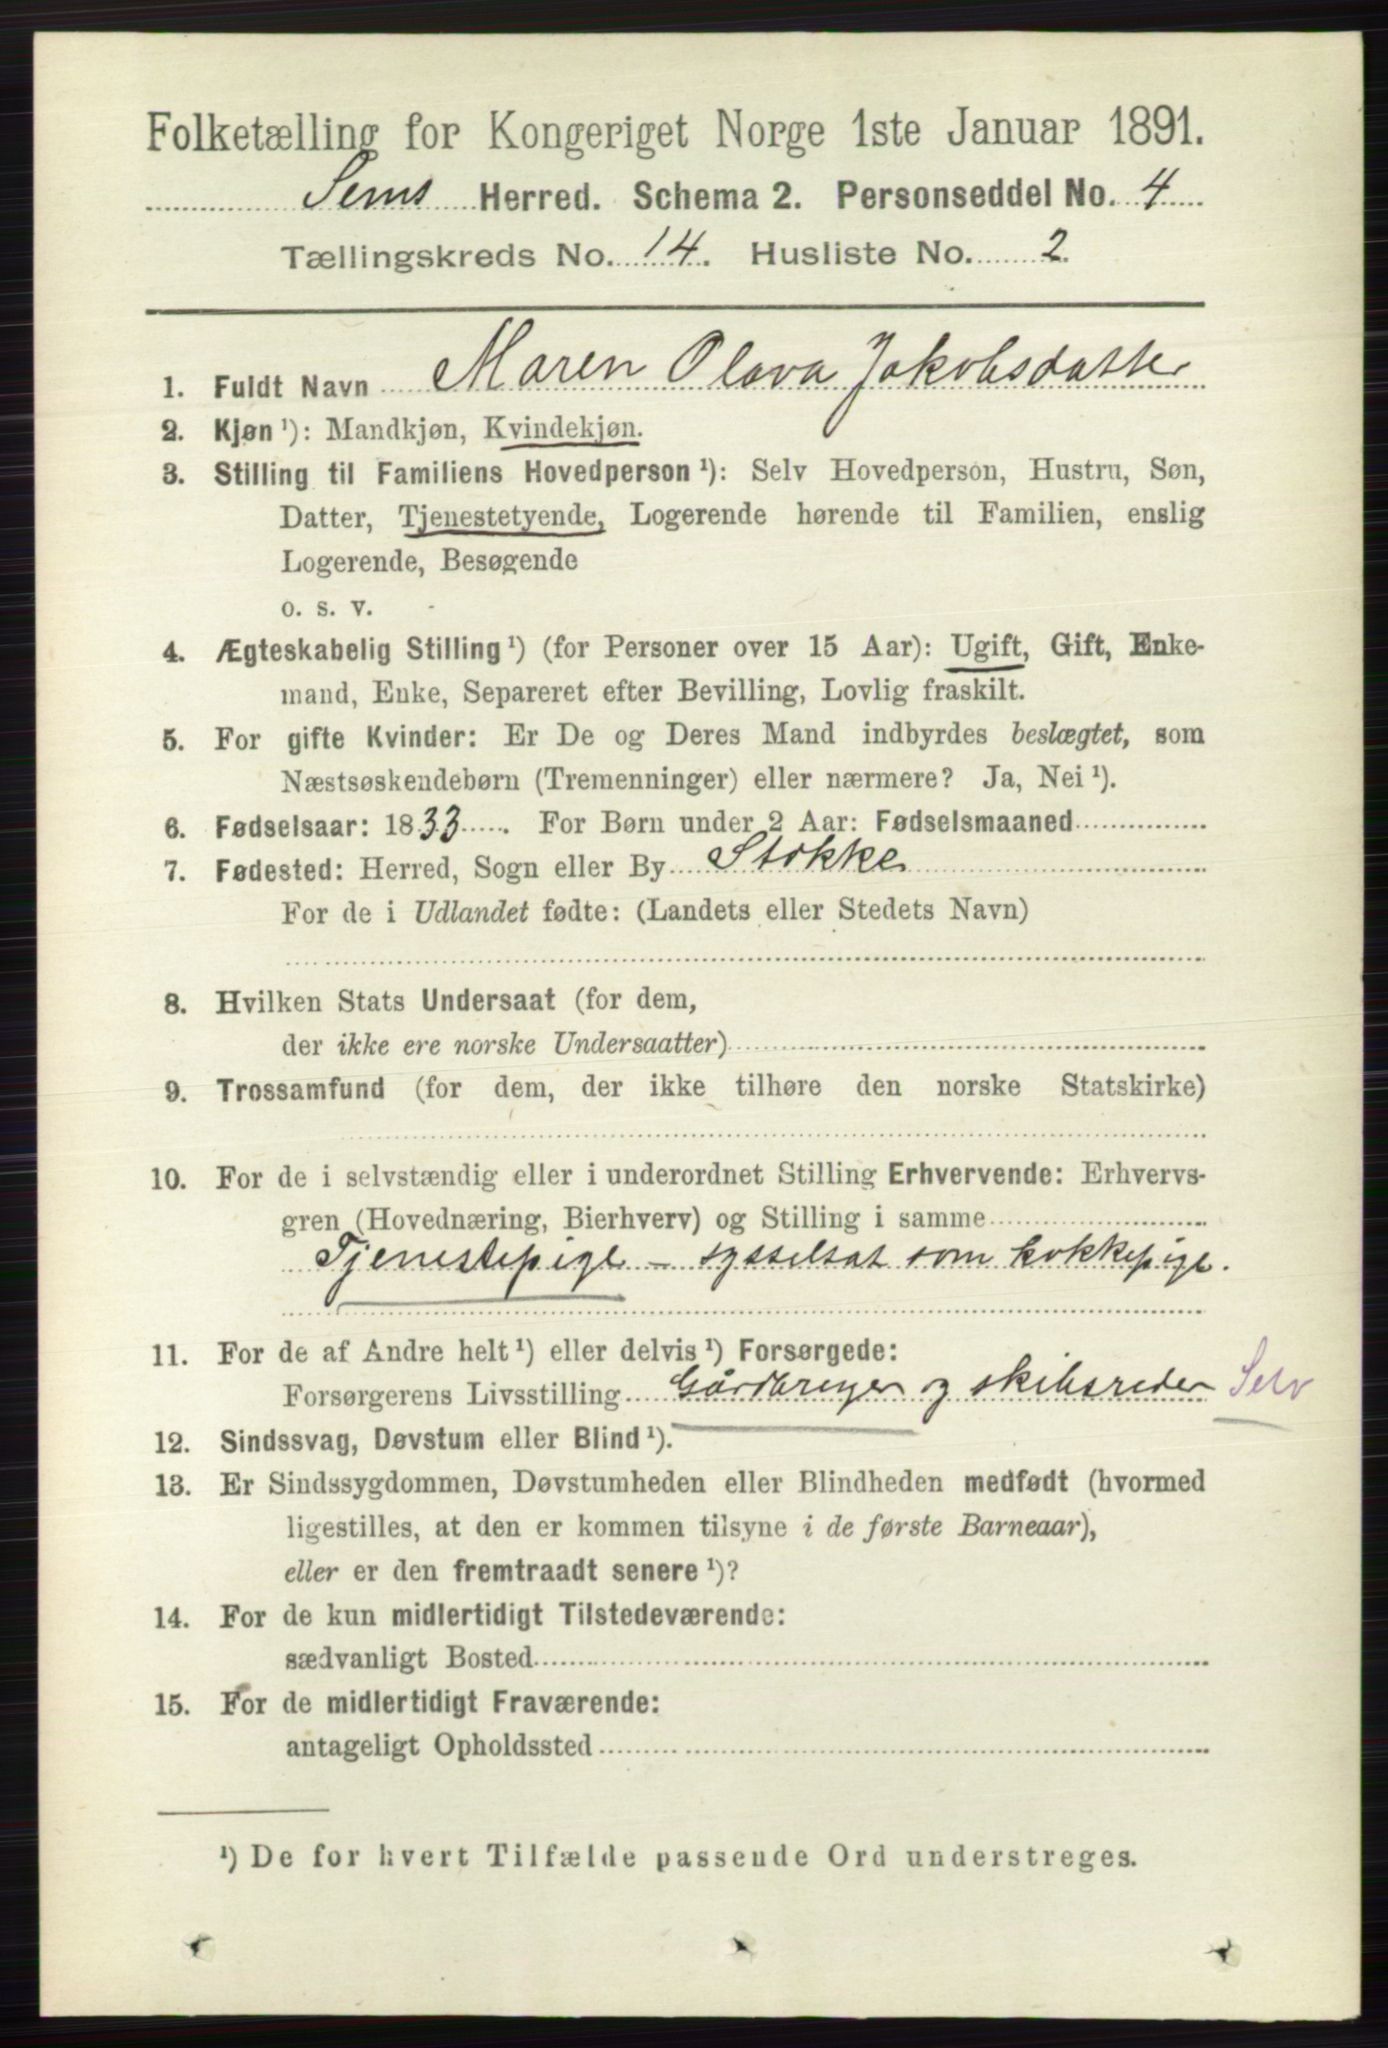 Folketælling for Kongeriget Norge 1ste Januar 1891.
Sems Herred. Schema 2. Personseddel No. 4
Tællingskreds No. 14. Husliste No. 2.
1. Fuldt Navn Maren Olava Jakobsdatter
2. Kjøn ¹): Mandkjøn, Kvindekjøn.
3. Stilling til Familiens Hovedperson ¹): Selv Hovedperson, Hustru, Søn,
Datter, Tjenestetyende, Logerende hørende til Familien, enslig
Logerende, Besøgende
o. s. v.
4. Ægteskabelig Stilling ¹) (for Personer over 15 Aar): Ugift, Gift, Enke-
mand, Enke, Separeret efter Bevilling, Lovlig fraskilt.
5. For gifte Kvinder: Er De og Deres Mand indbyrdes beslægtet, som
Næstsøskendebørn (Tremenninger) eller nærmere? Ja, Nei ¹).
6. Fødselsaar: 1833. For Børn under 2 Aar: Fødselsmaaned
7. Fødested: Herred, Sogn eller By Stokke
For de i Udlandet fødte: (Landets eller Stedets Navn)
8. Hvilken Stats Undersaat (for dem,
der ikke ere norske Undersaatter)
9. Trossamfund (for dem, der ikke tilhøre den norske Statskirke)
10. For de i selvstændig eller i underordnet Stilling Erhvervende: Erhvervs-
gren (Hovednæring, Bierhverv) og Stilling i samme
Tjenestepige – sysselsat som kokkepige.
11. For de af Andre helt ¹) eller delvis ¹) Forsørgede:
Forsørgerens Livsstilling Gårdbruger og skibsreder Selv
12. Sindssvag, Døvstum eller Blind ¹).
13. Er Sindssygdommen, Døvstumheden eller Blindheden medfødt (hvormed
ligestilles, at den er kommen tilsyne i de første Barneaar),
eller er den fremtraadt senere ¹)?
14. For de kun midlertidigt Tilstedeværende:
sædvanligt Bosted
15. For de midlertidigt Fraværende:
antageligt Opholdssted
¹) De for hvert Tilfælde passende Ord understreges.